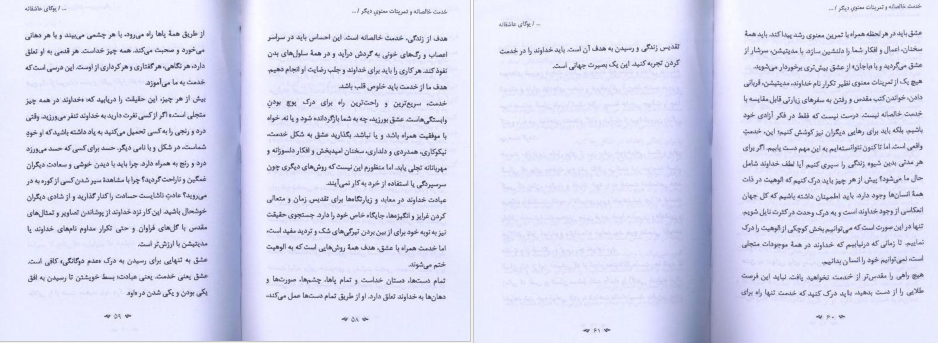 خدمت خالصانه و تمرینات معنوی دیگر / ...
هدف از زندگی، خدمت خالصانه است. این احساس باید در سراسر
اعصاب و رگ‌های خونی به گردش درآید و در همهٔ سلول‌های بدن
نفوذ کند. هر کاری را باید برای خداوند و جلب رضایت او انجام دهیم.
هدف ما از خدمت باید خلوص قلب باشد.
خدمت، سریع‌ترین و راحت‌ترین راه برای درک پوچ بودن
وابستگی‌هاست. عشق بورزید، چه به شما بازگردانده شود و یا نه، خواه
با موفقیت همراه باشد و یا نباشد. بگذارید عشق به شکل خدمت،
نیکوکاری، همدردی و دلداری، سخنان امیدبخش و افکار دلسوزانه و
مهربانانه تجلی یابد. اما منظورم این نیست که روش‌های دیگری چون
سرسپردگی یا استفاده از خرد به کار نمی‌آیند.
عبادت خداوند در معابد و زیارتگاه‌ها برای تقدیس زمان و متعالی
کردن غرایز و انگیزه‌ها، جایگاه خاص خود را دارد. جستجوی حقیقت
نیز به نوبه خود برای از بین بردن تیرگی‌های شک و تردید مفید است،
اما خدمت همراه با عشق، هدف همهٔ روش‌هایی است که به الوهیت
ختم می‌شوند.
تمام دست‌ها، دستان خداست و تمام پاها، چشم‌ها، صورت‌ها و
دهان‌ها به خداوند تعلق دارد. او از طریق تمام دست‌ها عمل می‌کند،
۵۸
... / یوگای عاشقانه
از طریق همهٔ پاها راه می‌رود، با هر چشمی می‌بیند و با هر دهانی
می‌خورد و صحبت می‌کند. همه چیز خداست. هر قدمی به او تعلق
دارد، هر نگاهی، هر گفتاری و هر کرداری از اوست. این درسی است که
خدمت به ما می‌آموزد.
بیش از هر چیز، این حقیقت را دریابید که: «خداوند در همه چیز
متجلی است.» اگر از کسی نفرت دارید به خداوند تنفر می‌ورزید. وقتی
درد و رنجی را به کسی تحمیل می‌کنید به یاد داشته باشید که او خودِ
شماست، در شکل و با نامی دیگر. حسد برای کسی که حسد می‌ورزد
درد و رنج به همراه دارد. چرا باید با دیدن خوشی و سعادت دیگران
غمگین و ناراحت گردید؟ چرا با مشاهدهٔ سیر شدن کسی از کوره به در
می‌روید؟ عادتِ ناشایست حسادت را کنار گذارید و از شادی دیگران
خوشحال باشید. این کار نزد خداوند از پوشاندن تصاویر و تمثال‌های
مقدس با گل‌های فراوان و حتی تکرار مداوم نام‌های خداوند یا
مدیتیشن با ارزش‌تر است.
عشق به تنهایی برای رسیدن به درک «عدم دوگانگی» کافی است.
عشق یعنی خدمت. یعنی عبادت؛ بسط خویشتن تا رسیدن به افق
یکی بودن و یکی شدن در «او»
۵۹
خدمت خالصانه و تمرینات معنوی دیگر / ...
عشق باید در هر لحظه همراه با تمرین معنوی رشد پیدا کند. باید همهٔ
سخنان، اعمال و افکار شما را دلنشین سازد. با مدیتیشن، سرشار از
عشق می‌گردید و با «باجان» از عشق بیش‌تری برخوردار می‌شوید.
هیچ یک از تمرینات معنوی نظیر تکرار نام خداوند، مدیتیشن، قربانی
دادن، خواندن کتب مقدس و رفتن به سفرهای زیارتی قابل مقایسه با
خدمت خالصانه نیست. درست نیست که فقط در فکر آزادی خود
باشیم، بلکه باید برای رهایی دیگران نیز کوشش کنیم؛ این، خدمتِ
واقعی است. اما تا کنون نتوانسته‌ایم به این مهم دست یابیم. اگر برای
هر مدتی بدین شیوه زندگی را سپری کنیم آیا لطف خداوند شامل
حال ما می‌شود؟ پیش از هر چیز باید درک کنیم که الوهیت در ذات
همهٔ انسان‌ها وجود دارد. باید اطمینان داشته باشیم که کل جهان
انعکاسی از وجود خداوند است و به درک وحدت در کثرت نایل شویم.
تنها در این صورت است که می‌توانیم بخش کوچکی از الوهیت را درک
نماییم. تا زمانی که درنیابیم که خداوند در همهٔ موجودات متجلی
است، نمی‌توانیم خود را انسان بدانیم.
هیچ راهی را مقدس‌تر از خدمت نخواهید یافت. نباید این فرصت
طلایی را از دست بدهید. باید درک کنید که خدمت تنها راه برای
۶۰
... / یوگای عاشقانه
تقدیس زندگی و رسیدن به هدف آن است. باید خداوند را در خدمت
کردن تجربه کنید. این یک بصیرت جهانی است.
۶۱